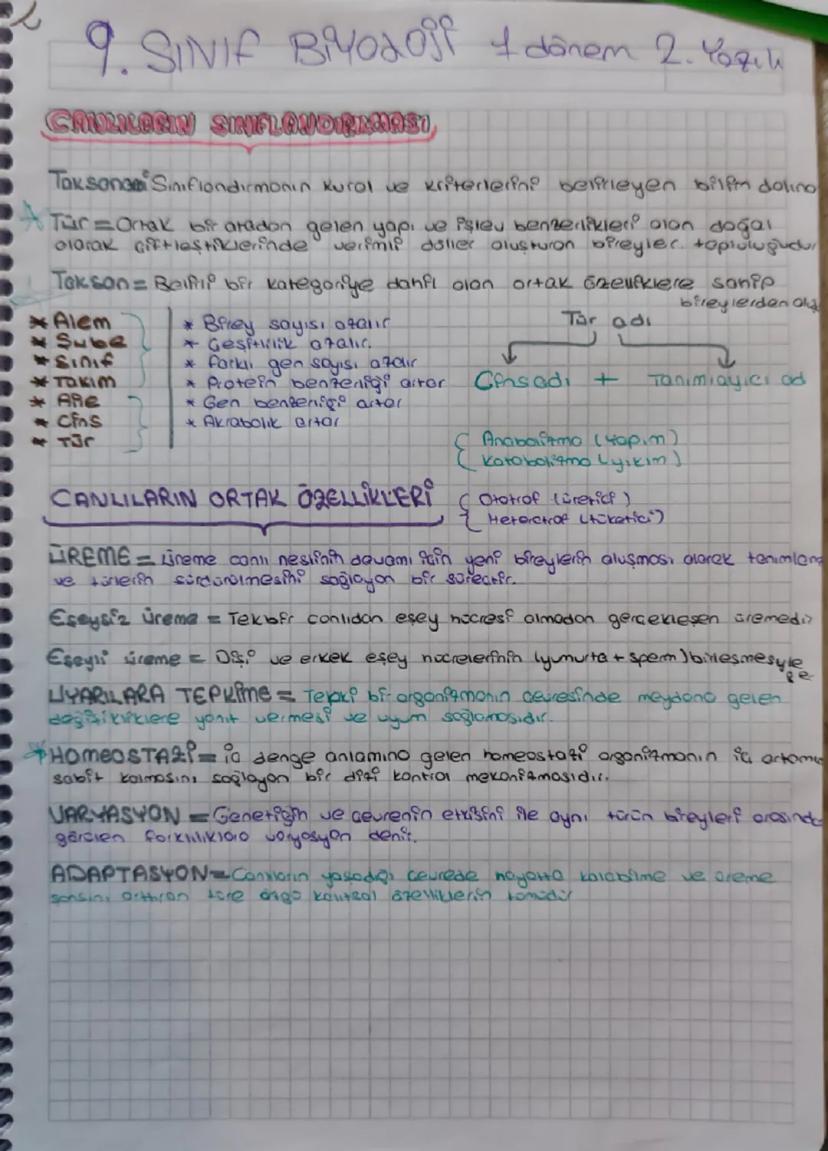 9. SINIF BİYOLOJİ 1 dönem 2. Yazılı
CANLILARIN SINIFLANDIRILMASI
Taksonomi Sınıflandırmanın kural ve kriterlerini belirleyen bilim dalına
Tür = Ortak bir atadan gelen yapı ve işlev benzerlikleri olan doğal
olarak çiftleştiklerinde verimli döller oluşturan bireyler topluluğudur
Takson = Belirli bir kategoriye dahil olan ortak özelliklere sahip
bireylerden
* Alem
* Şube
* Sınıf
* Takım
* Aile
* Cins
* Tür
* Birey sayısı azalır
* Çeşitlilik azalır.
* Farklı gen sayısı azalır
* Protein benzerliği artar
* Gen benzerliği artar
* Akrabalık artar
Tür adı
Cins adı + Tanımlayıcı ad
Anabolizma (yapım)
Katabolizma (yıkım)
CANLILARIN ORTAK ÖZELLİKLERİ
Ototrof (üretici)
Heterotrof (tüketici)
ÜREME = Üreme canlı neslinin devamı için yeni bireylerin oluşması olarak tanımlanır
ve türlerin sürdürülmesini sağlayan bir süreçtir.
Eşeysiz üreme = Tek bir canlıdan eşey hücresi olmadan gerçekleşen üremedir
Eşeyli üreme = Dişi ve erkek eşey hücrelerinin (yumurta + sperm) birleşmesiyle
ge
UYARILARA TEPKİME = Tepki bir organizmanın çevresinde meydana gelen
değişikliklere yanıt vermesi ve uyum sağlamasıdır.
HOMEOSTAZİ = iç denge anlamına gelen homeostazi organizmanın iç ortamı
sabit kalmasını sağlayan bir dizi kontrol mekanizmasıdır.
VARYASYON = Genetiğin ve çevrenin etkisini ile aynı türün bireyleri arasında
görülen farklılıklara varyasyon denir.
ADAPTASYON = Canlıların yaşadığı çevrede hayatta kalabilme ve üreme
şansını arttıran türe özgü kalıtsal özelliklerin tümüdür